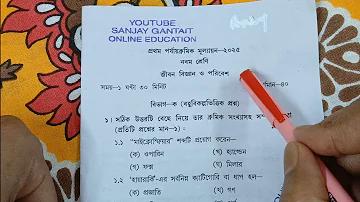 YOUTUBE
SANJAY GANTAIT
ONLINE EDUCATION
প্রথম পর্যায়ক্রমিক মূল্যায়ন—২০২৫
নবম শ্রেণি
জীবন বিজ্ঞান ও পরিবেশ
সময়—১ ঘণ্টা ৩০ মিনিট
মান—৪০
বিভাগ—ক (বহুবিকল্পভিত্তিক প্রশ্ন)
১। সঠিক উত্তরটি বেছে নিয়ে তার ক্রমিক সংখ্যাসহ
(প্রতিটি প্রশ্নের মান—১) :
১.১ "মাইক্রোস্ফিয়ার" শব্দটি প্রয়োগ করেন—
(ক) ওপারিন (খ) হ্যালডেন
(গ) ফক্স (ঘ) মিলার
১.২ 'হায়ারার্কি'-এর সর্বনিম্ন ক্যাটিগোরি বা ধাপ হল—
(ক) প্রজাতি (খ) গণ